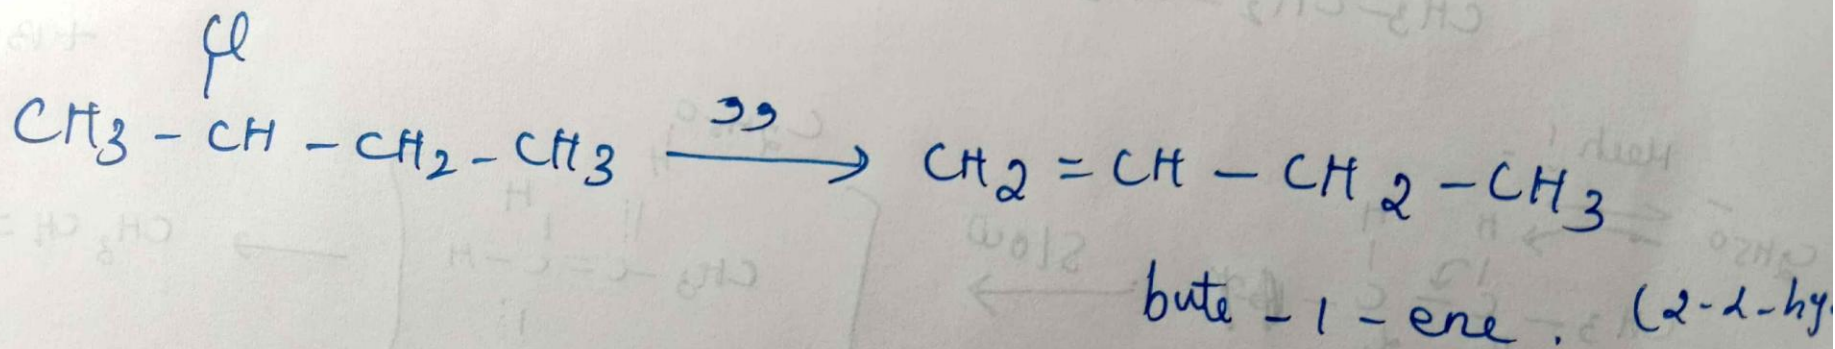 Cl
CH3 - CH - CH2 - CH3 ,,→ CH2 = CH - CH2 - CH3
bute - 1 - ene. (2-α-hy